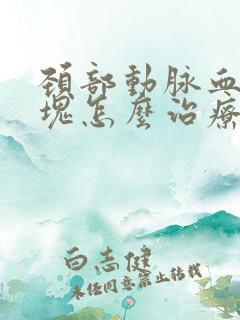 頚部動脉血
塊怎麽治療
白志健
未经同意禁止转载